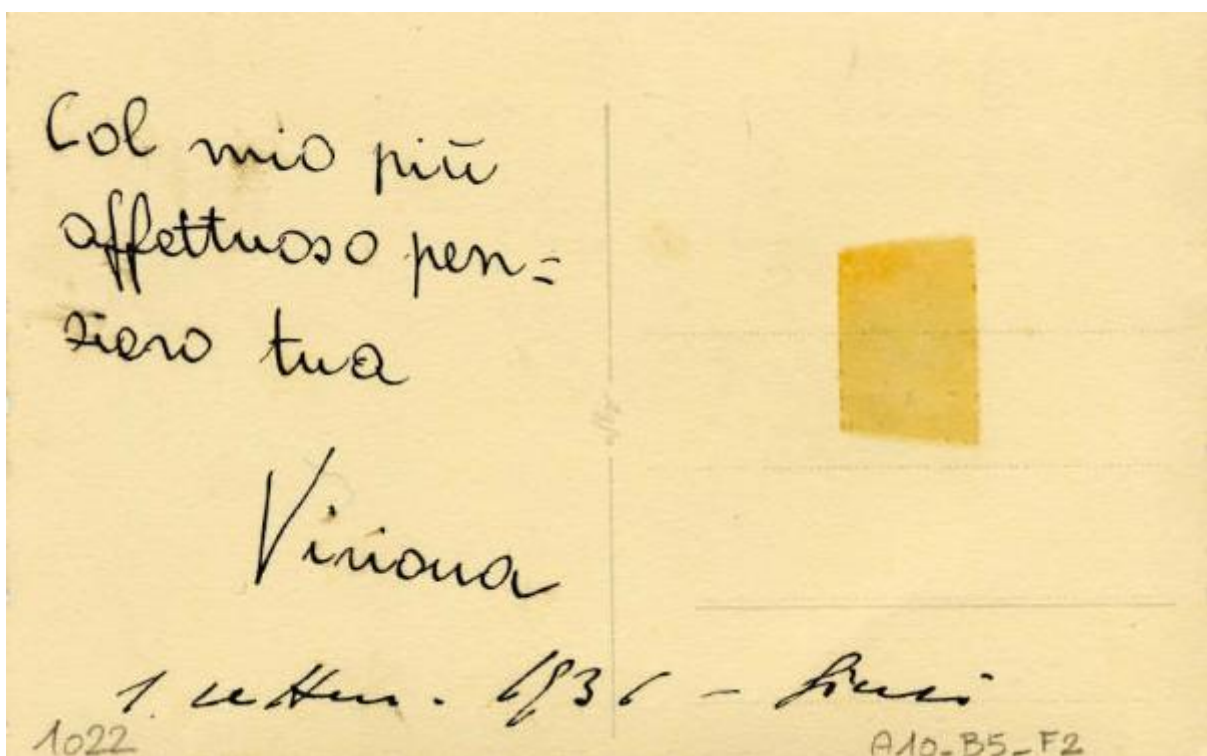 Col mio più
affettuoso pen=
siero tua
1. settem. 1936 -
1022
A10-B5-F2